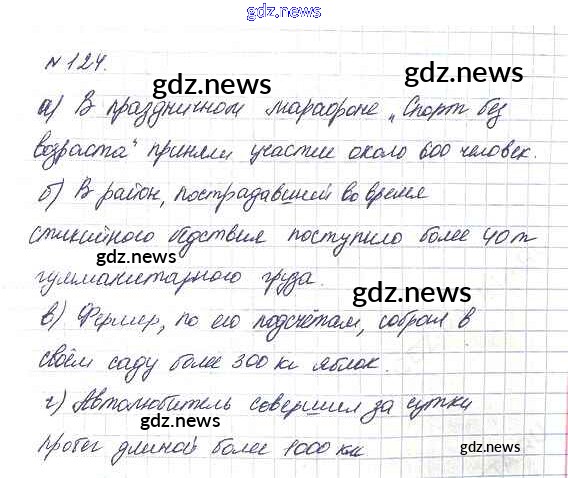 gdz.news
№ 124.
gdz.news gdz.news
а) В праздничном марафоне „Спорт без
возраста“ приняли участие около 600 человек.
б) В район, пострадавший во время
стихийного бедствия поступило более 40 т
gdz.news gdz.news
гумманитарного груза.
gdz.news
в) Фермер, по его подсчётам, собрал в
своём саду более 300 кг яблок.
г) Автолюбитель совершил за сутки
gdz.news
пробег длиной более 1000 км
gdz.news gdz.news